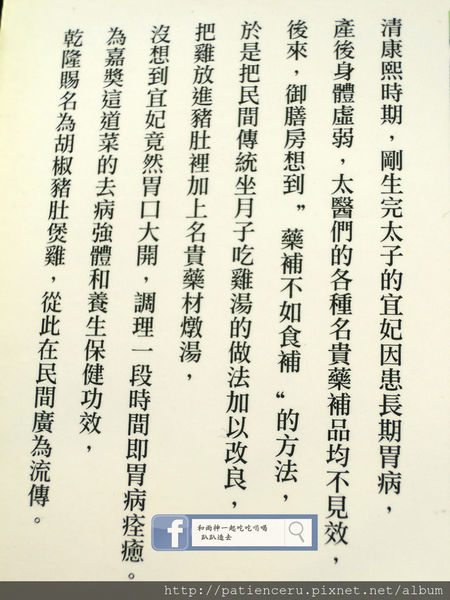 清康熙時期，剛生完太子的宜妃因患長期胃病，
產後身體虛弱，太醫們的各種名貴藥補品均不見效，
後來，御膳房想到”藥補不如食補“的方法，
於是把民間傳統坐月子吃雞湯的做法加以改良，
把雞放進豬肚裡加上名貴藥材燉湯，
沒想到宜妃竟然胃口大開，調理一段時間即胃病痊癒。
為嘉獎這道菜的去病強體和養生保健功效，
乾隆賜名為胡椒豬肚煲雞，從此在民間廣為流傳。
f
和雨神一起吃吃喝喝
趴趴造去
http://patienceru.pixnet.net/album